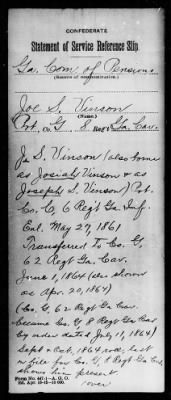 CONFEDERATE
Statement of Service Reference Slip.
Ga. Com of Pensions
(Source of communication.)
Joe S. Vinson
(Name.)
Pvt. Co. G. 8 Ga. Cav.
Jo S. Vinson (also borne
as Josiah Vinson & as
Joseph S. Vinson) Pvt.
Co. C, 6 Regt Ga. Inf.
Enl. May 27, 1861
Transferred to Co. G,
62 Regt Ga. Cav.
June 1, 1864 (also shown
as Apr. 20, 1864)
(Co. G, 62 Regt Ga. Cav.
became Co. G, 8 Regt Ga. Cav.
by order dated July 11, 1864)
Sept & Oct. 1864 roll, last
on file for Co. G, 8 Regt Ga. Cav.
shows him present.
Form No. 447-1—A. G. O.
over